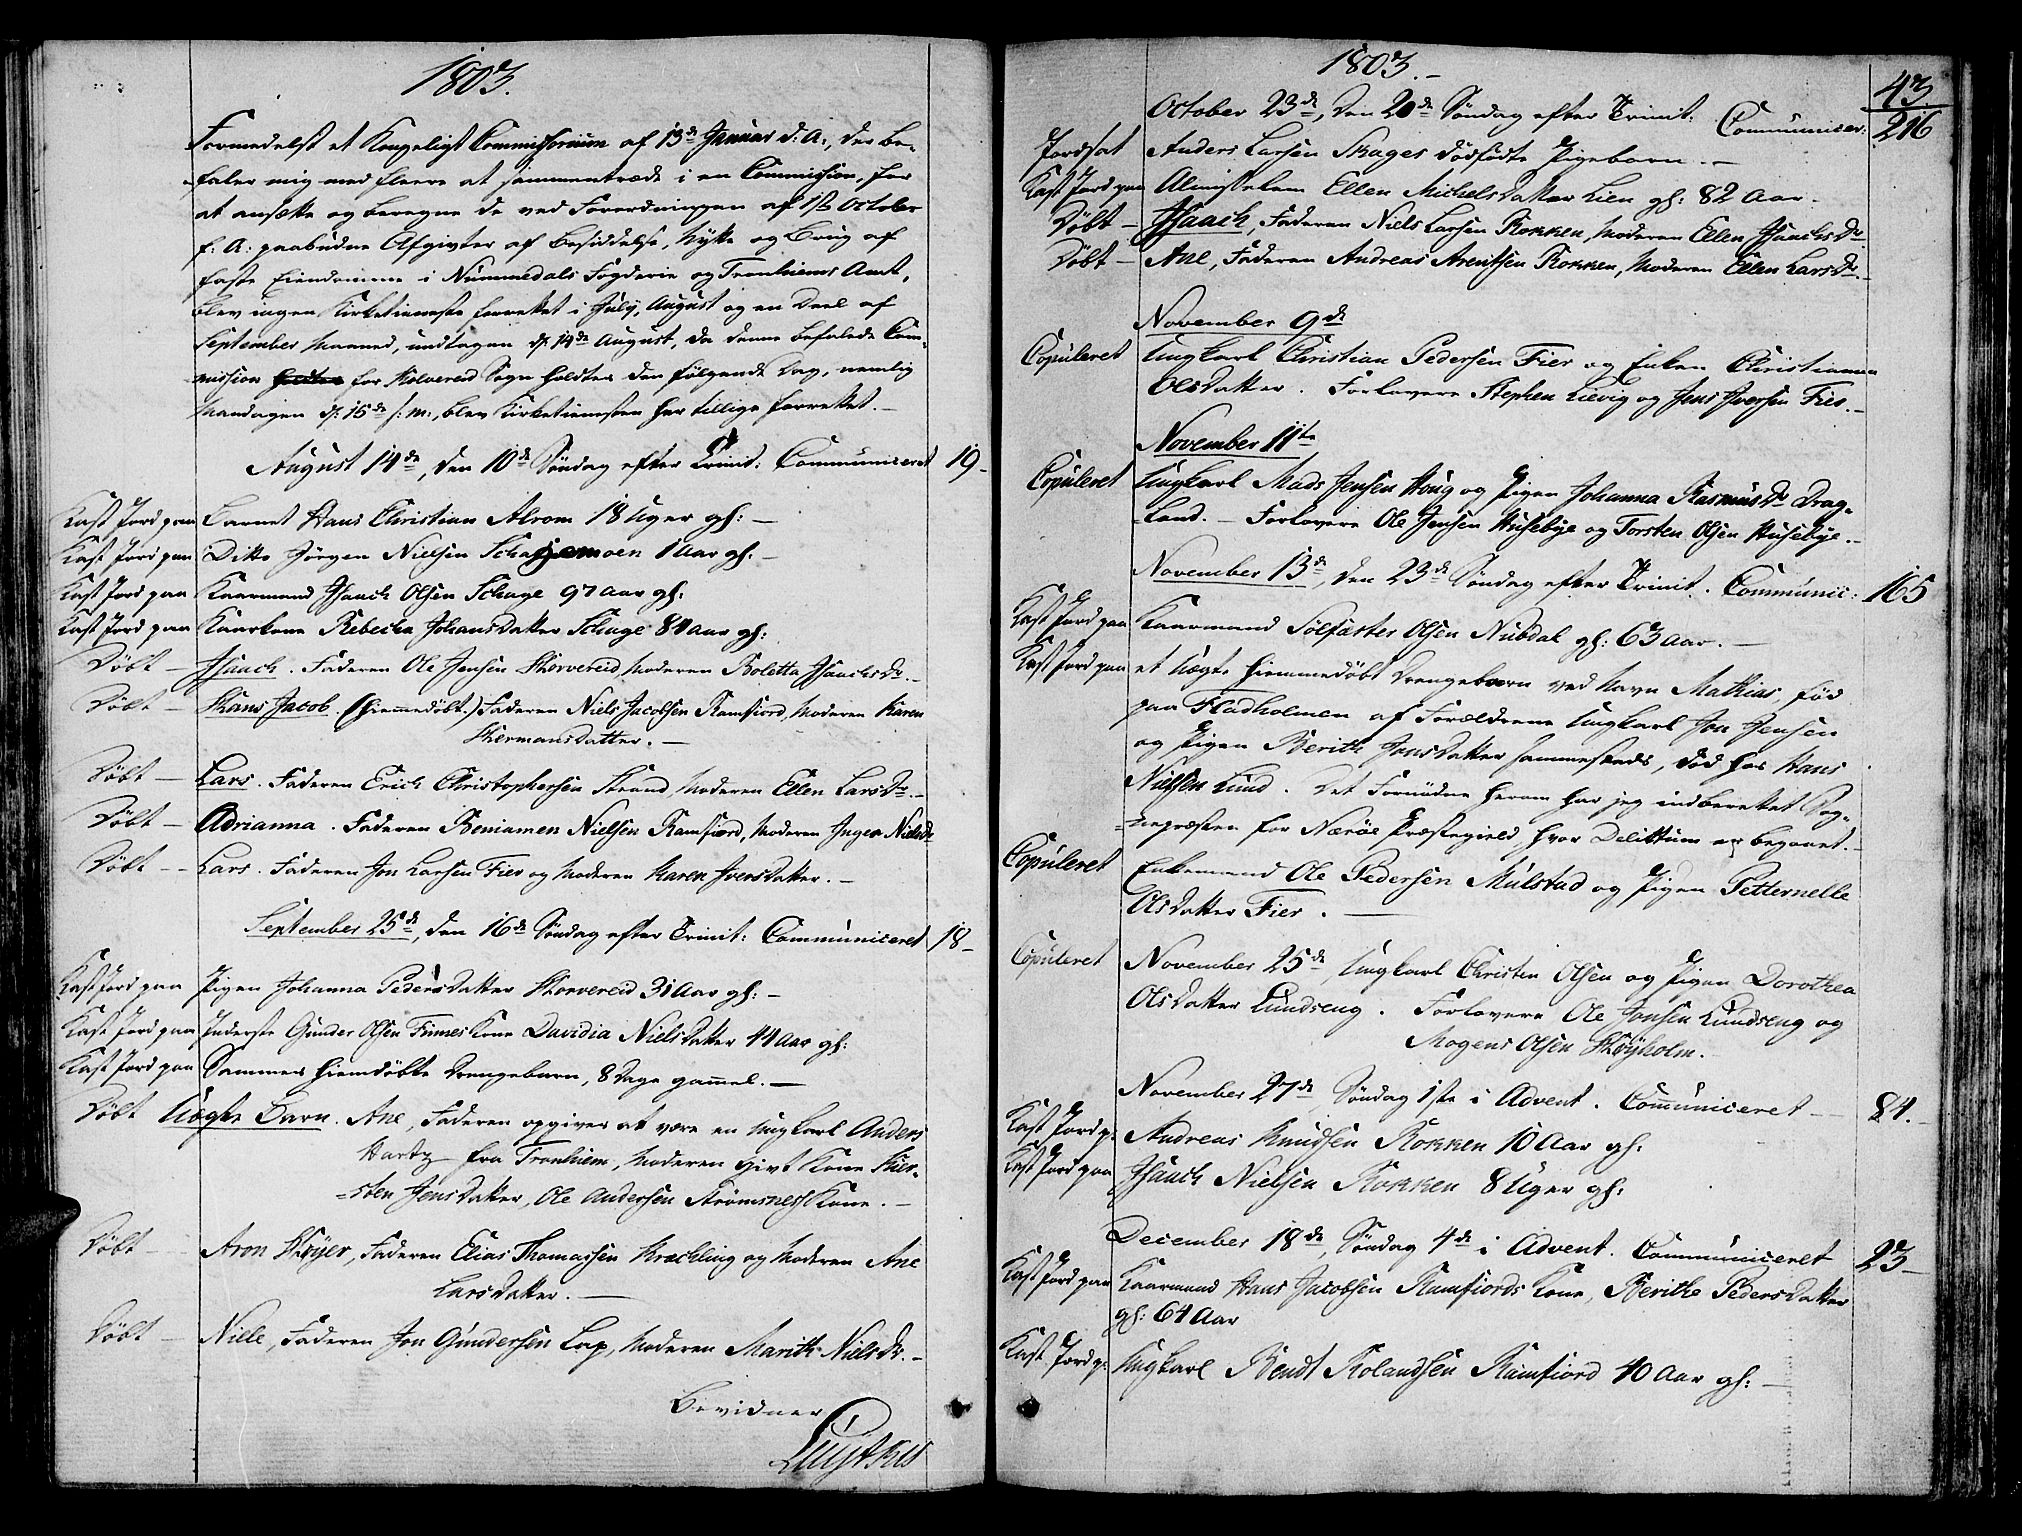 1803.
Formedelst et Kongeligt Commissorium af 13de Januar d: A:, der be-
faler mig med fleere at sammentræde i en Commission, for
at ansætte og beregne de ved Forordningen af 1ste October
f: A: paabudne Afgivter af Besiddelse, Nytte og Brug af
faste Eiendomme i Nummedals Fogderie og Tronhiems Amt,
blev ingen Kirketieneste forrettet i July, August og en Deel af
September Maaned, undtagen d: 14de August, da denne befalede Com-
mission for Kolvereid Sogn holdtes den følgende Dag, nemlig
Mandagen d: 15de s: m:, blev Kirketienesten her tillige forrettet. -
August 14de, den 10de Søndag efter Trinit: Communiceret 19 -
Kast Jord paa Barnet Hans Christian Alrom 18 Uger gl: -
Kast Jord paa Ditto Jörgen Nielsen Schagemoen 1 Aar gl: -
Kast Jord paa Kaarmand Isaach Olsen Schage 97 Aar gl:
Kast Jord paa Kaarkone Rebecka Johansdatter Schage 84 Aar gl:
Döbt - Isaach. Faderen Ole Jensen Horvereid, Moderen Boletta Isaachs Dr. -
Döbt - Hans Jacob. (hiemmedöbt.) Faderen Niels Jacobsen Ramfiord, Moderen Karen
Hermansdatter. -
Döbt - Lars. Faderen Erich Christophersen Strand, Moderen Ellen Lars Dr. -
Döbt - Adrianna. Faderen Beniamen Nielsen Ramfiord, Moderen Inger Niels Dr
Döbt - - Lars. Faderen Jon Larsen Fier og Moderen Karen Iversdatter. -
September 25de, den 16de Søndag efter Trinit: Communiceret 18 -
Kast Jord paa Pigen Johanna Pedersdatter Horvereid 31 Aar gl: -
Kast Jord paa Inderste Gunder Olsen Finnes Kone Davidia Nielsdatter 44 Aar gl:
Kast Jord paa Sammes hiemdöbte Drengebarn, 8 Dage gammel. -
Döbt Uægte Barn. Ane, Faderen opgives at være en Ungkarl Anders
Hartz fra Tronhiem, Moderen givt Kone Kier-
sten Jensdatter, Ole Andersen Strömsnes's Kone. -
Döbt - Aron Höyer, Faderen Elias Thomassen Kræchling og Moderen Ane
Larsdatter. -
Döbt - Niele, Faderen Jon Gundersen Lap, Moderen Marith Niels Dr. -
Bevidner
1803. -
43
October 23de, den 20de Søndag efter Trinit: Communicer: 216
Jordsat Anders Larsen Skages dödfödte Pigebarn. -
Kast Jord paa Almisselem Ellen Michelsdatter Lien gl: 82 Aar.
Döbt - Isaach, Faderen Niels Larsen Rokken, Moderen Ellen Isaachs Dr
Döbt - Ane, Faderen Andreas Arentsen Rokken, Moderen Ellen Lars Dr. -
November 9de
Copuleret Ungkarl Christian Pedersen Fier og Enken Christianna
Olsdatter. Forlovere Stephen Lievig og Jens Iversen Fier. -
November 11te
Copuleret Ungkarl Mads Jensen Houg og Pigen Johanna Rasmus Dr Drag-
land. - Forlovere Ole Jensen Husebye og Torsten Olsen Husebye. -
November 13de, den 23de Søndag efter Trinit. Communic: 165
Kast Jord paa Kaarmand Solfæster Olsen Nubdal gl: 63 Aar. -
Kast Jord paa et Uægte hiemmedöbt Drengebarn ved Navn Mathias, föd
paa Fladholmen af Forældrene Ungkarl Jon Jensen
og Pigen Berith Jonsdatter sammesteds, död hos Hans
Nielsen Lund. Det Fornödne herom har jeg indberettet Sog-
nepræsten for Næröe Præstegield, hvor Delictum er begaaet. -
Copuleret Enkemand Ole Pedersen Mulstad og Pigen Petternelle
Olsdatter Fier. -
Copuleret November 25de, Ungkarl Christen Olsen og Pigen Dorothea
Olsdatter Lundseng. Forlovere Ole Jonsen Lundseng og
Mogens Olsen Höyholm.
November 27de, Søndag 1ste i Advent. Communiceret - 84. -
Kast Jord p: Andreas Knudsen Rokken 10 Aar gl:
Kast Jord paa Isaach Nielsen Rokken 8 Uger gl:
December 18de, Søndag 4de i Advent. Communiceret 23 -
Kast Jord paa Kaarmand Hans Jacobsen Ramfiords Kone, Berithe Pedersdatter
gl: 64 Aar
Kast Jord p: Ungkarl Bendt Rolandsen Ramfiord 40 Aar gl: -